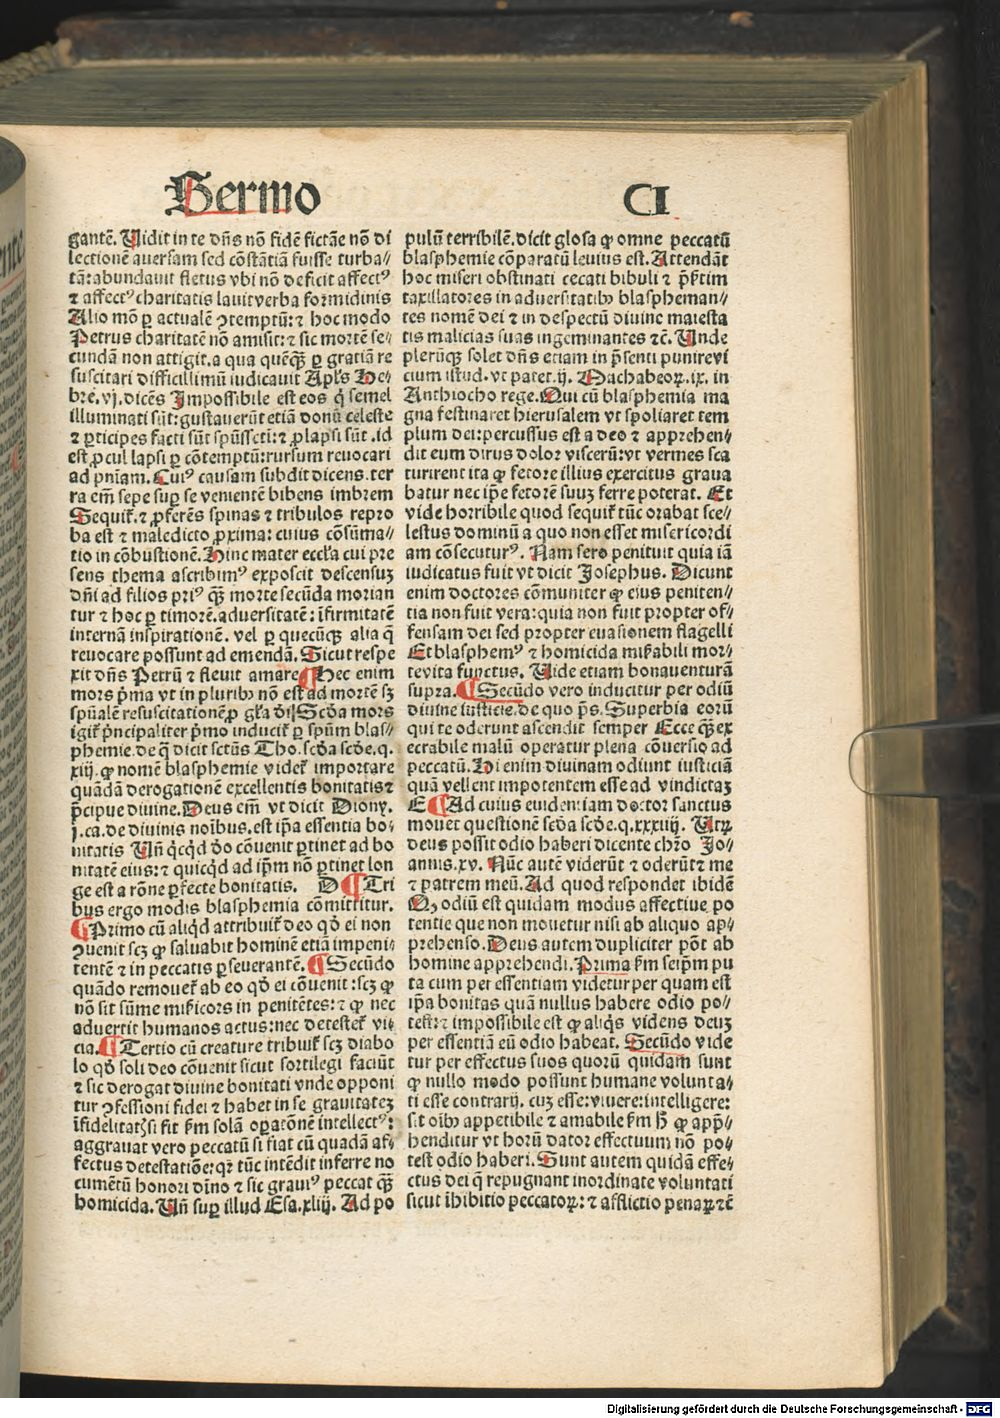 Sermo CI
gantē. Uidit in te dn̄s nō fidē fictāe nō di
lectionē auersam sed cōstātiā fuisse turba⸗
tā: abundauit fletus vbi nō deficit affectꝰ
⁊ affectꝰ charitatis lauit verba formidinis
Alio mō ꝑ actualē ꝯtemptū: ⁊ hoc modo
Petrus charitatē nō amisit: ⁊ sic mortē se⸗
cundā non attigit. a qua quēqꝫ ꝑ gratiā re
suscitari difficillimū iudicauit Apl's He⸗
bre. vj. dicēs Impossibile est eos q̄ semel
illuminati sūt: gustauerūt etiā donū celeste
⁊ ꝑticipes facti sūt spūssctī: ⁊ ꝓlapsi sūt .id
est ꝓcul lapsi ꝑ cōtemptū: rursum reuocari
ad pniam. Cuiꝰ causam subdit dicens. ter
ra em̄ sepe suꝑ se venientē bibens imbrem
Sequit̄. ⁊ ꝓferēs spinas ⁊ tribulos repro
ba est ⁊ maledicto ꝓxima: cuius cōsūma⸗
tio in cōbustionē. Hinc mater eccl'a cui pre
sens thema ascribimꝰ exposcit descensuꝫ
dn̄i ad filios priꝰ qꝫ morte secūda morian
tur ⁊ hoc ꝑ timorē. aduersitatē: īfirmitatē
internā inspirationē. vel ꝑ quecūqꝫ alia q̄
reuocare possunt ad emendā. Sicut respe
xit dn̄s Petrū ⁊ fleuit amare ¶ Hec enim
mors pͥma vt in pluribꝰ nō est ad mortē sꝫ
spūalē resuscitationē ꝓ gl'a dī. Scd'a mors
igit̄ pͥncipaliter pͥmo inducit̄ ꝑ spūm blas⸗
phemie. de q̄ dicit sctūs Tho. scd'a scd'e. q.
xiij. ꝙ nomē blasphemie videt̄ importare
quādā derogationē excellentis bonitatis ⁊
p̄cipue diuine. Deus em̄ vt dicit Diony.
j. ca. de diuinis noībus. est ip̄a essentia bo⸗
nitatis Un̄ q̇cq̇d deo cōuenit ꝑtinet ad bo
nitatē eius: ⁊ quicq̇d ad ip̄m nō ꝑtinet lon
ge est a rōne ꝑfecte bonitatis. D ¶ Tri
bus ergo modis blasphemia cōmittitur.
¶ Primo cū aliq̇d attribuit̄ deo qd̕ ei non
ꝯuenit scꝫ ꝙ saluabit hominē etiā impeni⸗
tentē ⁊ in peccatis ꝑseuerantē. ¶ Secūdo
quādo remouet̄ ab eo qd̕ ei cōuenit: scꝫ ꝙ
nō sit sūme mīcors in penitētes: ⁊ ꝙ nec
aduertit humanos actus: nec detestet̄ vi⸗
cia. ¶ Tertio cū creature tribuit̄ scꝫ diabo
lo qd̕ soli deo cōuenit sicut sortilegi faciūt
⁊ sic derogat diuine bonitati vnde opponi
tur ꝯfessioni fidei ⁊ habet in se grauitateꝫ
īfidelitatꝭ si fit ẜm solā oꝑatōnē intellectꝰ:
aggrauat vero peccatū si fiat cū quadā af⸗
fectus detestatiōe: qꝛ tūc intēdit inferre no
cumētū honori dīno ⁊ sic grauiꝰ peccat qꝫ
homicida. Un̄ suꝑ illud Esa. xliij. Ad po
pulū terribilē. dicit glosa ꝙ omne peccatū
blasphemie cōparatū leuius est. Attendāt
hoc miseri obstinati cecati bibuli ⁊ p̄s̄tim
taxillatores in aduersitatibꝰ blaspheman⸗
tes nomē dei ⁊ in despectū diuine maiesta
tis malicias suas ingeminantes ⁊c̄. Unde
plerūqꝫ solet dn̄s etiam in p̄senti punire vi
cium istud. vt patet. ij. Machabeoꝝ. ix. in
Anthiocho rege. Qui cū blasphemia ma
gna festinaret hierusalem vt spoliaret tem
plum dei: percussus est a deo ⁊ apprehen⸗
dit eum dirus dolor viscerū: vt vermes sca
turirent ita ꝙ fetore illius exercitus graua
batur nec ip̄e fetorē suuꝫ ferre poterat. Et
vide horribile quod sequit̄ tūc orabat sce⸗
lestus dominū a quo non esset misericordi
am cōsecuturꝰ. Nam sero penituit quia iā
iudicatus fuit vt dicit Josephus. Dicunt
enim doctores cōmuniter ꝙ eius peniten⸗
tia non fuit vera: quia non fuit propter of⸗
fensam dei sed propter euasionem flagelli
Et blasphemꝰ ⁊ homicida mīabili mor⸗
te vita functus. Uide etiam bonauenturā
supra. ¶ Secūdo vero inducitur per odiū
diuine iusticie. de quo ps̄. Superbia eorū
qui te oderunt ascendit semper Ecce qꝫ ex
ecrabile malū operatur plena cōuersio ad
peccatū. Hi enim diuinam odiunt iusticiā
quā vellent impotentem esse ad vindictaꝫ
E ¶ Ad cuius euidentiam doctor sanctus
mouet questionē scd'a scd'e. q. xxxiiij. Utꝝ
deus possit odio haberi dicente chr̄o Jo⸗
annis. xv. Nūc autē viderūt ⁊ oderūt ⁊ me
⁊ patrem meū. Ad quod respondet ibidē
Qꝫ odiū est quidam modus affectiue po
tentie que non mouetur nisi ab aliquo ap⸗
prehenso. Deus autem dupliciter pōt ab
homine apprehendi. Prima ẜm seip̄m pu
ta cum per essentiam videtur per quam est
ip̄a bonitas quā nullus habere odio po⸗
test: ⁊ impossibile est ꝙ aliq̇s videns deuꝫ
per essentiā eū odio habeat. Secūdo vide
tur per effectus suos quorū quidam sunt
ꝙ nullo modo possunt humane volunta⸗
ti esse contrarij. cuꝫ esse: viuere: intelligere:
sit oībꝰ appetibile ⁊ amabile ẜm h̄ ꝙ app̄⸗
henditur vt horū dator effectuum nō po⸗
test odio haberi. Sunt autem quidā effe⸗
ctus dei q̄ repugnant inordinate voluntati
sicut īhibitio peccatoꝝ: ⁊ afflictio penaꝝ ⁊c̄
Digitalisierung gefördert durch die Deutsche Forschungsgemeinschaft - DFG